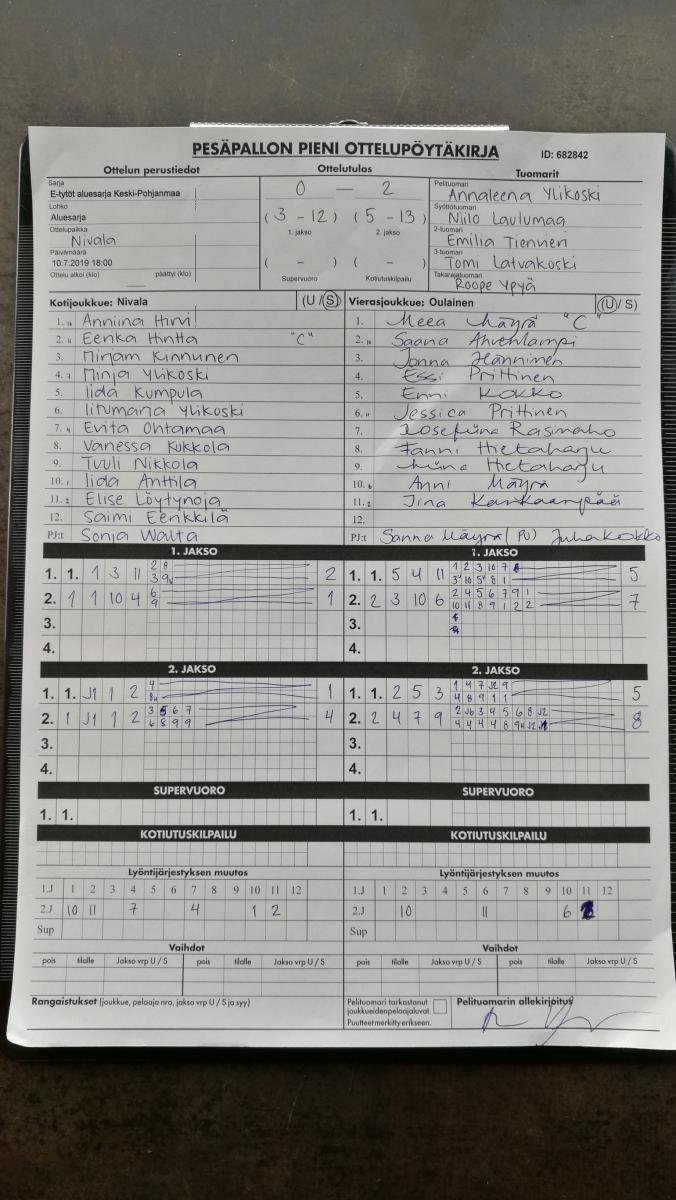 PESÄPALLON PIENI OTTELUPÖYTÄKIRJA ID: 682842
Ottelun perustiedot Ottelutulos Tuomarit
Sarja
E-tytöt aluesarja Keski-Pohjanmaa
Lohko
Aluesarja
Ottelupaikka
Nivala
Päivämäärä
10.7.2019 18:00
Ottelu alkoi (klo) päättyi (klo)
0 — 2
(3 - 12) (5 - 13)
1. jakso 2. jakso
( - ) ( - )
Supervuoro Kotiutuskilpailu
Pelituomari
Annaleena Ylikoski
Syöttötuomari
Niilo Laulumaa
2-tuomari
Emilia Tienvieri
3-tuomari
Tomi Latvakoski
Takarajatuomari
Roope Ypyä
Kotijoukkue: Nivala (U / S)
1. 10 Anniina Hirvi
2. 11 Eenka Hintta "C"
3. Mirjam Kinnunen
4. 7 Minja Ylikoski
5. Iida Kumpula
6. Iitumaria Ylikoski
7. 4 Evita Ohtamaa
8. Vanessa Kukkola
9. Tuuli Nikkola
10. 1 Iida Anttila
11. 2 Elise Löytynoja
12. Saimi Eenkkilä
PJ:t Sonja Walta
Vierasjoukkue: Oulainen (U / S)
1. Meea Mäyrä "C"
2. 10 Saana Ahvenlampi
3. Jonna Hänninen
4. Essi Prittinen
5. Enni Kokko
6. 11 Jessica Prittinen
7. Josefiina Rasinaho
8. Fanni Hietaharju
9. Hietaharju
10. 6 Anni Mäyrä
11. 2 Jina Kankaanpää
12.
PJ:t Sanna Mäyrä (PJ) Juha Kokko
1. JAKSO
1. 1. 1 3 11 2 8 2
3 9v
2. 1 1 10 4 6 1
9
3.
4.
1. JAKSO
1. 1. 5 4 11 1 2 3 10 7 5
3v 10 5v 8 1
2. 2 3 10 6 2 4 5 6 7 9 1 7
10 11 8 9 1 2 2
3.
4.
2. JAKSO
1. 1. J1 1 2 4 1
2. 1 J1 1 2 3 5 6 7 4
6 8 9 9
3.
4.
2. JAKSO
1. 1. 2 5 3 1 4 7 J2 9 5
4 8 9 1 1
2. 2 4 7 9 2 J6 3 4 5 6 8 J2 8
4 4 4 4 8 9v J2
3.
4.
SUPERVUORO SUPERVUORO
1. 1. 1. 1.
KOTIUTUSKILPAILU KOTIUTUSKILPAILU
Lyöntijärjestyksen muutos
1.J 1 2 3 4 5 6 7 8 9 10 11 12
2.J 10 11 7 4 1 2
Sup
Lyöntijärjestyksen muutos
1.J 1 2 3 4 5 6 7 8 9 10 11 12
2.J 10 11 6
Sup
Vaihdot Vaihdot
pois tilalle Jakso vrp U / S pois tilalle Jakso vrp U / S pois tilalle Jakso vrp U / S pois tilalle Jakso vrp U / S
Rangaistukset (joukkue, pelaaja nro, jakso vrp U / S ja syy)
Pelituomari tarkastanut
joukkueiden pelaajaluvat.
Puutteet merkitty erikseen.
Pelituomarin allekirjoitus